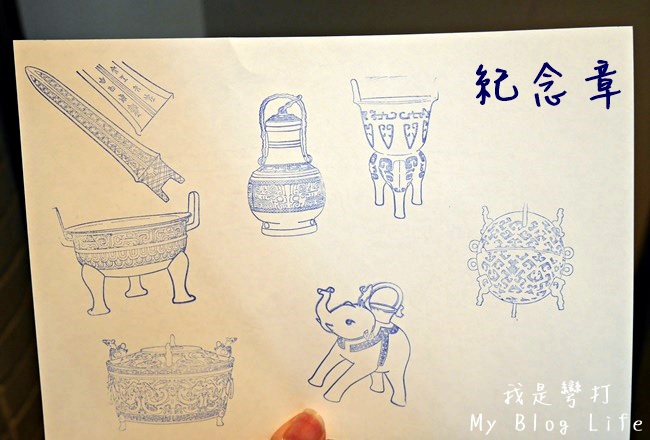 紀念章
我是彎打
My Blog Life